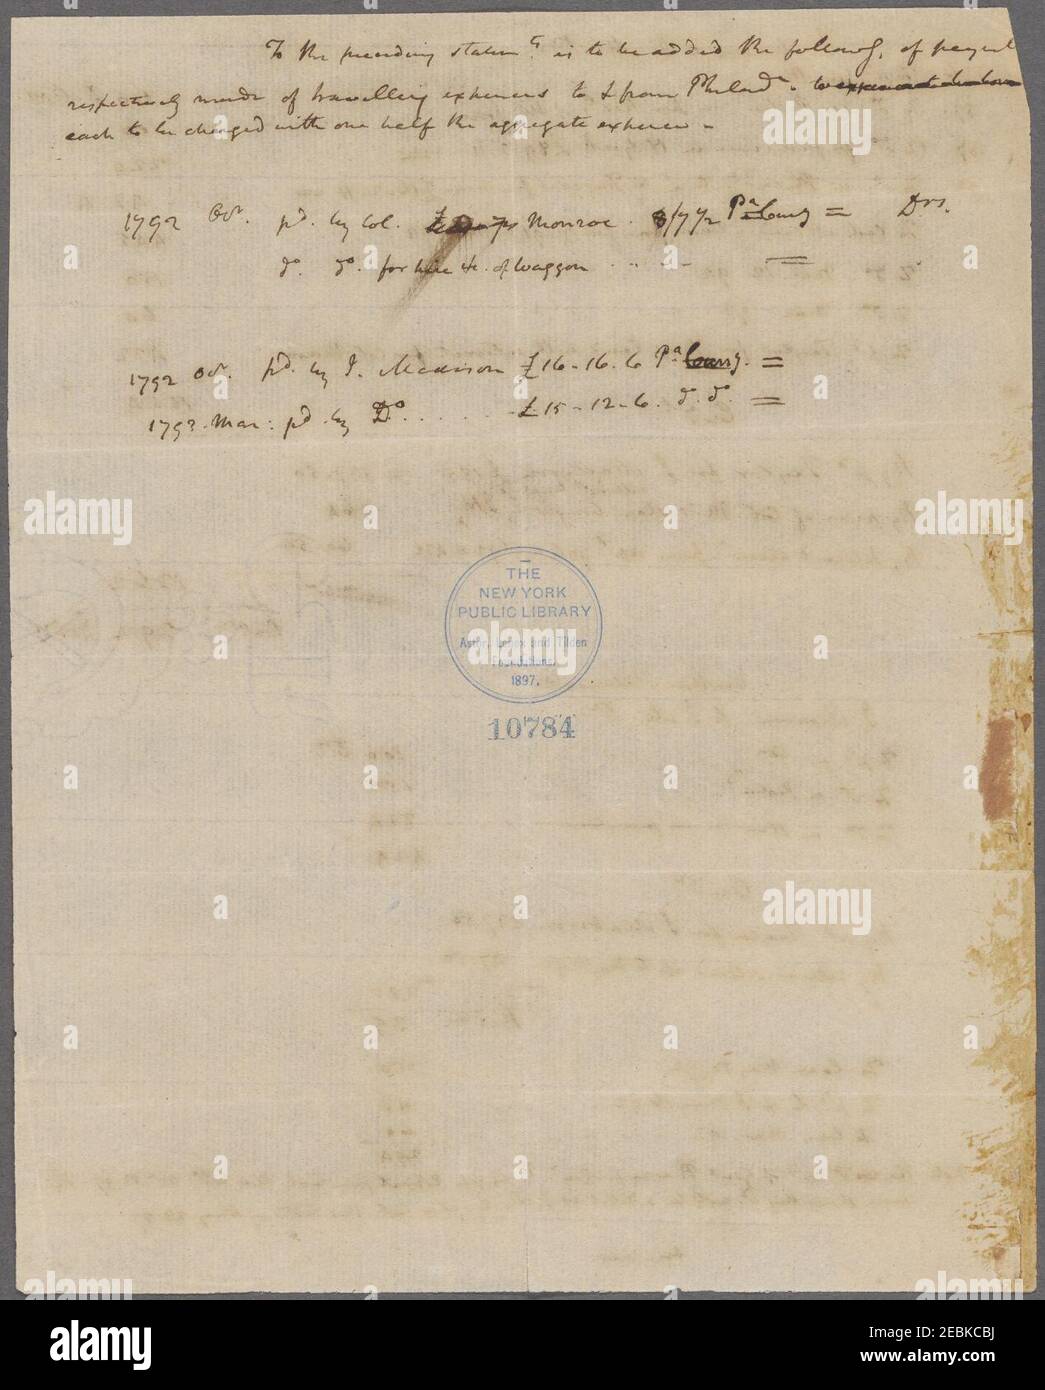 To the preceding statemts. is to be added the followg. of payments
respectively made of travelling expences to & from Philada.
each to be charged with one half the aggregate expence -
1792 Ocr. pd. by Col. Monroe. 8/7 1/2 Pa. Curcy = Drs.
do. do. for hire &c. of Waggon =
1792 Ocr. pd. by J. Madison £16-16.6 Pa. Curry. =
1793. Mar: pd. by Do. ...... £15-12-6. do. do. =
THE
NEW YORK
PUBLIC LIBRARY
Astor, Lenox and Tilden
Foundations.
1897.
10784
alamy
Image ID: 2EBKCBJ
www.alamy.com